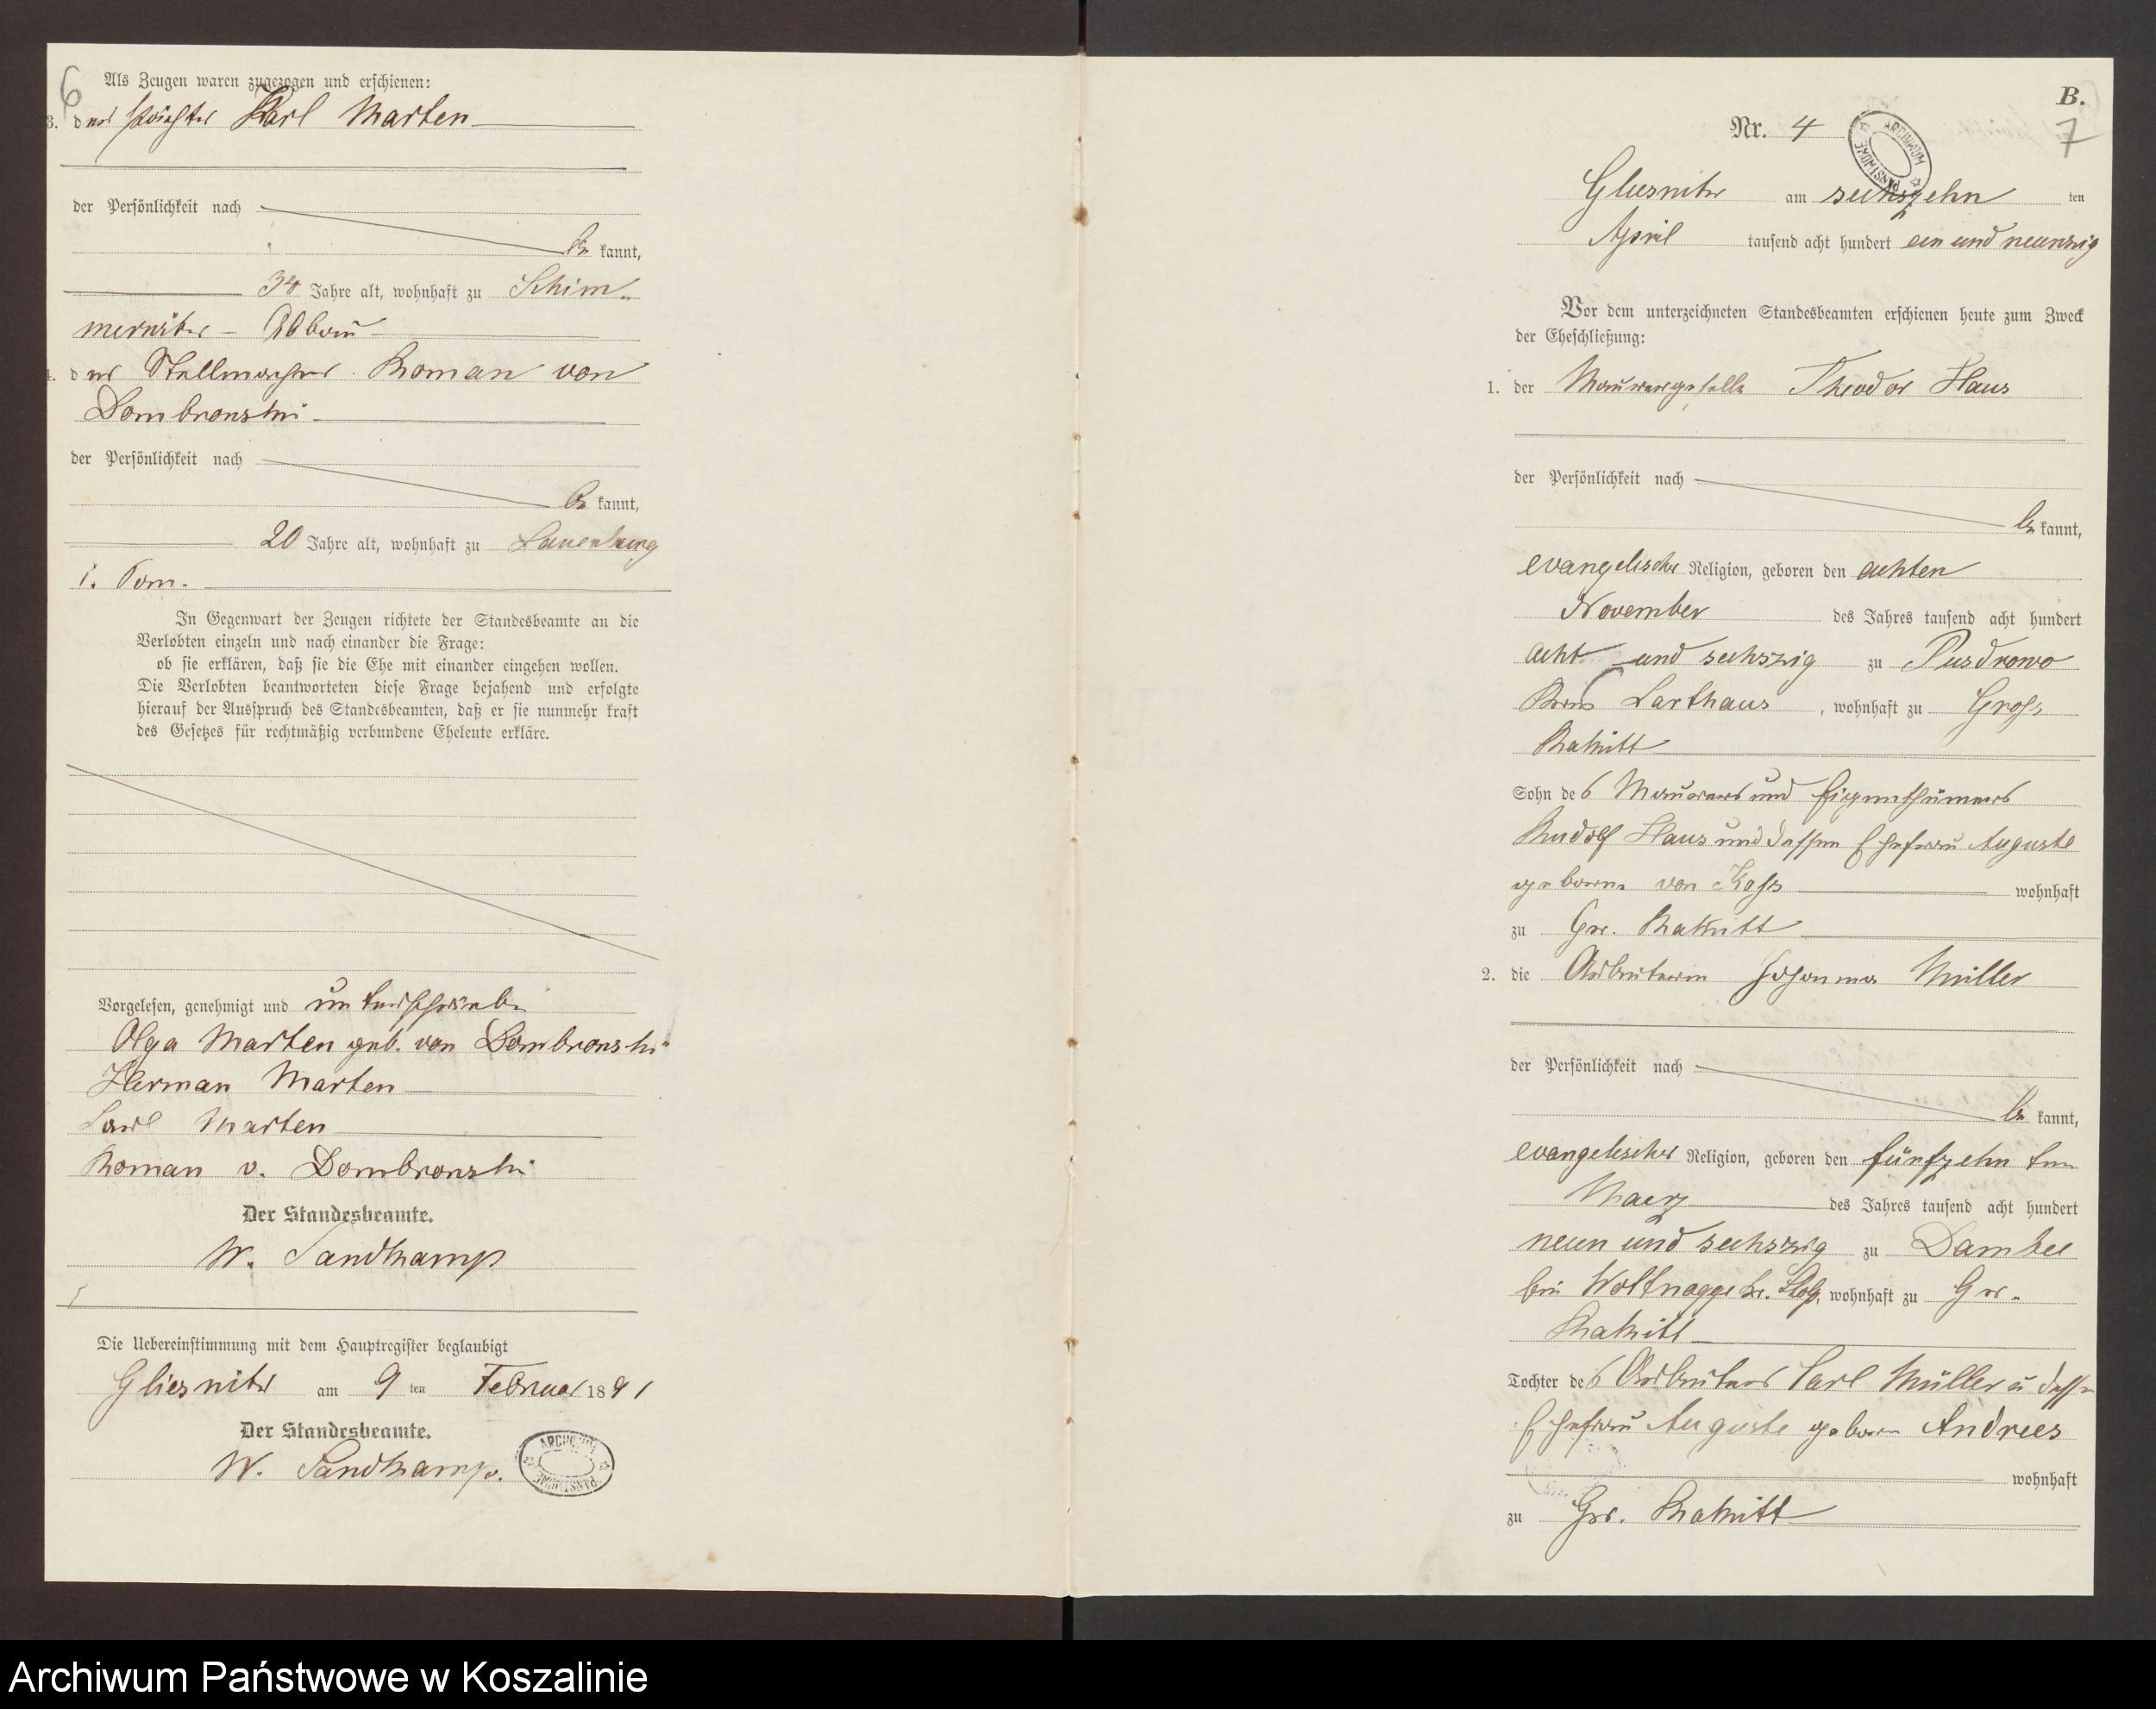 6
Als Zeugen waren zugezogen und erschienen:
3. der Pächter Karl Marten
der Persönlichkeit nach
be kannt,
34 Jahre alt, wohnhaft zu Schim-
merwitz - Abbau
4. der Stellmacher Roman von
Dombronski
der Persönlichkeit nach
be kannt,
20 Jahre alt, wohnhaft zu Lauenburg
i. Pom.
In Gegenwart der Zeugen richtete der Standesbeamte an die
Verlobten einzeln und nach einander die Frage:
ob sie erklären, daß sie die Ehe mit einander eingehen wollen.
Die Verlobten beantworteten diese Frage bejahend und erfolgte
hierauf der Ausspruch des Standesbeamten, daß er sie nunmehr kraft
des Gesetzes für rechtmäßig verbundene Eheleute erkläre.
Vorgelesen, genehmigt und unterschrieben
Olga Marten geb. von Dombronski
Herman Marten
Carl Marten
Roman v. Dombronski
Der Standesbeamte.
W. Sandkamp
Die Uebereinstimmung mit dem Hauptregister beglaubigt
Gliesnitz am 9 ten Februar 1891
Der Standesbeamte.
W. Sandkamp.
ARCHIWUM PAŃSTWOWE
B.
7
Nr. 4
ARCHIWUM PAŃSTWOWE
Gliesnitz am sechszehn ten
April tausend acht hundert ein und neunzig
Vor dem unterzeichneten Standesbeamten erschienen heute zum Zweck
der Eheschließung:
1. der Maurergeselle Theodor Haus
der Persönlichkeit nach
be kannt,
evangelischer Religion, geboren den achten
November des Jahres tausend acht hundert
acht und sechszig zu Pusdrowo
Kreis Carthaus, wohnhaft zu Gross
Rakitt
Sohn des Maurers und Eigenthümers
Rudolf Haus und dessen Ehefrau Auguste
geborne von Kass wohnhaft
zu Gr. Rakitt
2. die Arbeiterin Johanna Müller
der Persönlichkeit nach
be kannt,
evangelischer Religion, geboren den fünfzehn ten
Maerz des Jahres tausend acht hundert
neun und sechszig zu Dambee
bei Wottnogge Kr. Stolp, wohnhaft zu Gr.
Rakitt
Tochter des Arbeiters Carl Müller u dessen
Ehefrau Auguste geboren Andrees
wohnhaft
zu Gr. Rakitt
Archiwum Państwowe w Koszalinie